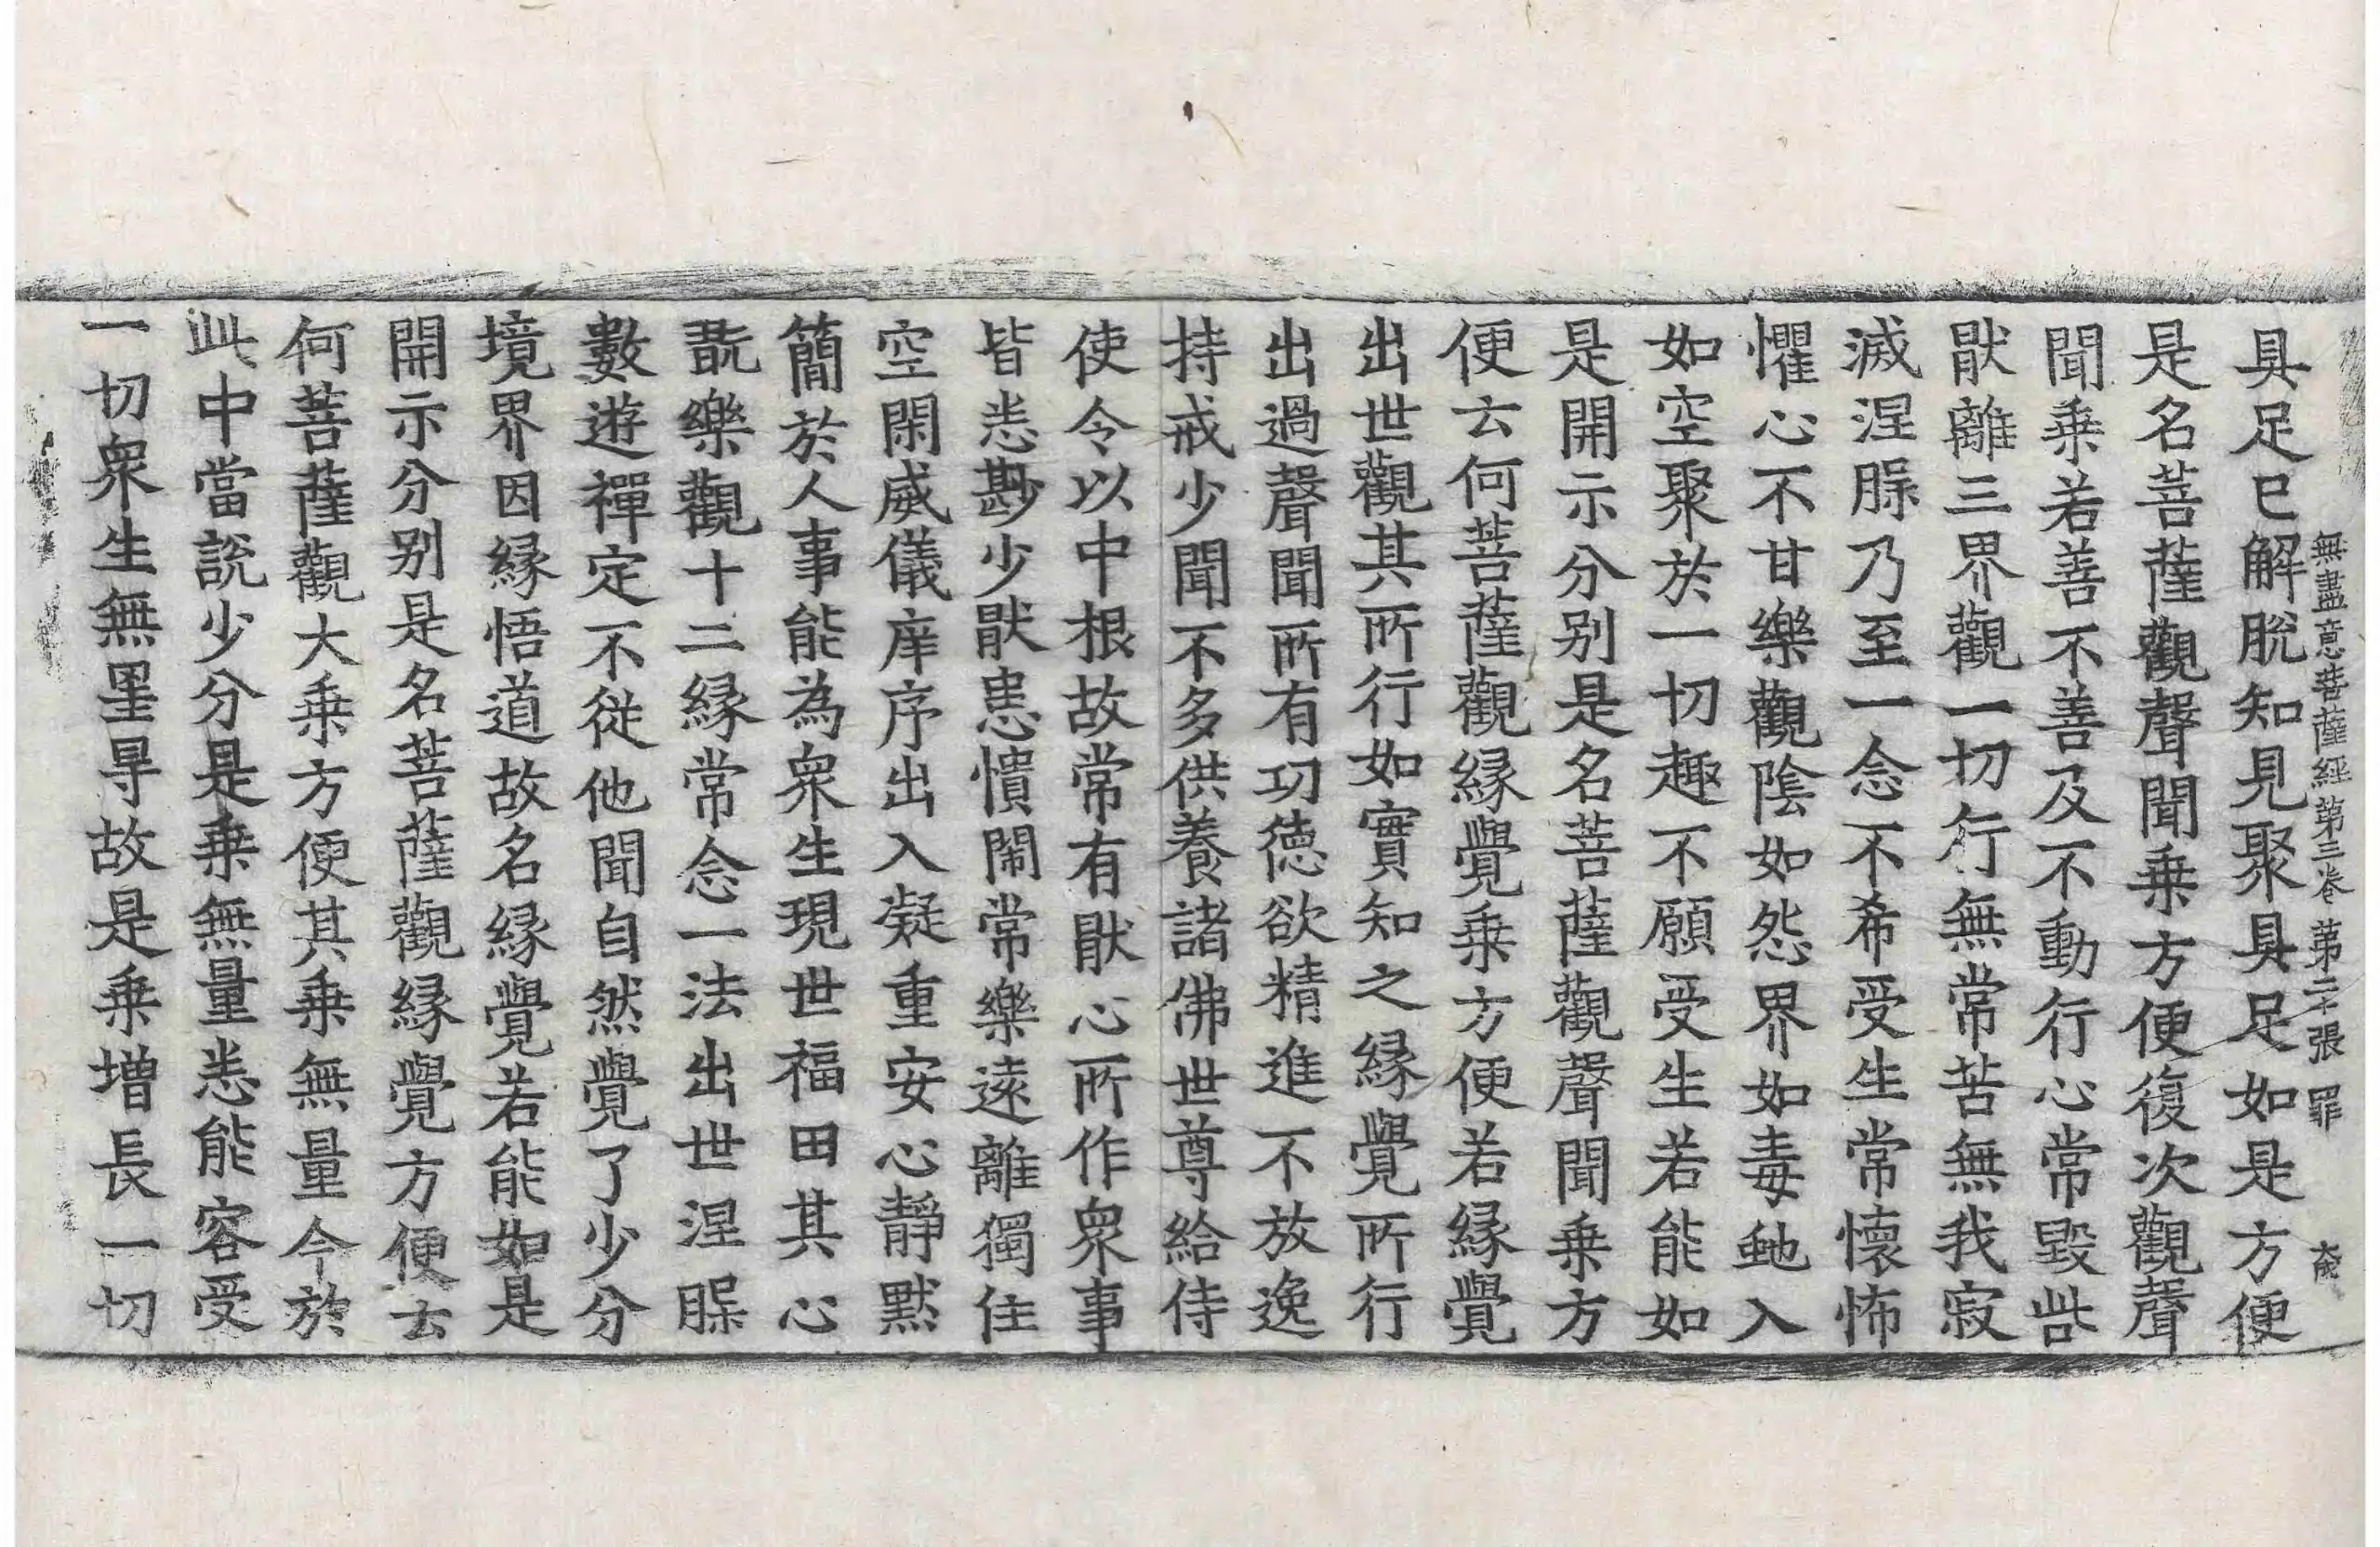 無盡意菩薩經第三卷 第二十張 罪 大能
具足巳解脫知見聚具足如是方便
是名菩薩觀聲聞乗方便復次觀聲
聞乗若善不善及不動行心常毀呰
猒離三界觀一切行無常苦無我寂
滅涅𣉢乃至一念不希受生常懷怖
懼心不甘樂觀陰如怨界如毒虵入
如空聚於一切趣不願受生若能如
是開示分别是名菩薩觀聲聞乗方
便云何菩薩觀縁覺乗方便若縁覺
出世觀其所行如實知之縁覺所行
出過聲聞所有功徳欲精進不放逸
持戒少聞不多供養諸佛世尊給侍
使令以中根故常有猒心所作衆事
皆悉尠少猒患憒閙常樂逺離獨住
空閑威儀庠序出入凝重安心靜默
簡於人事能為衆生現世福田其心
翫樂觀十二縁常念一法出世涅𣉢
數遊禪定不從他聞自然覺了少分
境界因縁悟道故名縁覺若能如是
開示分别是名菩薩觀縁覺方便云
何菩薩觀大乗方便其乗無量今於
此中當說少分是乗無量悉能容受
一切衆生無罣㝵故是乗増長一切